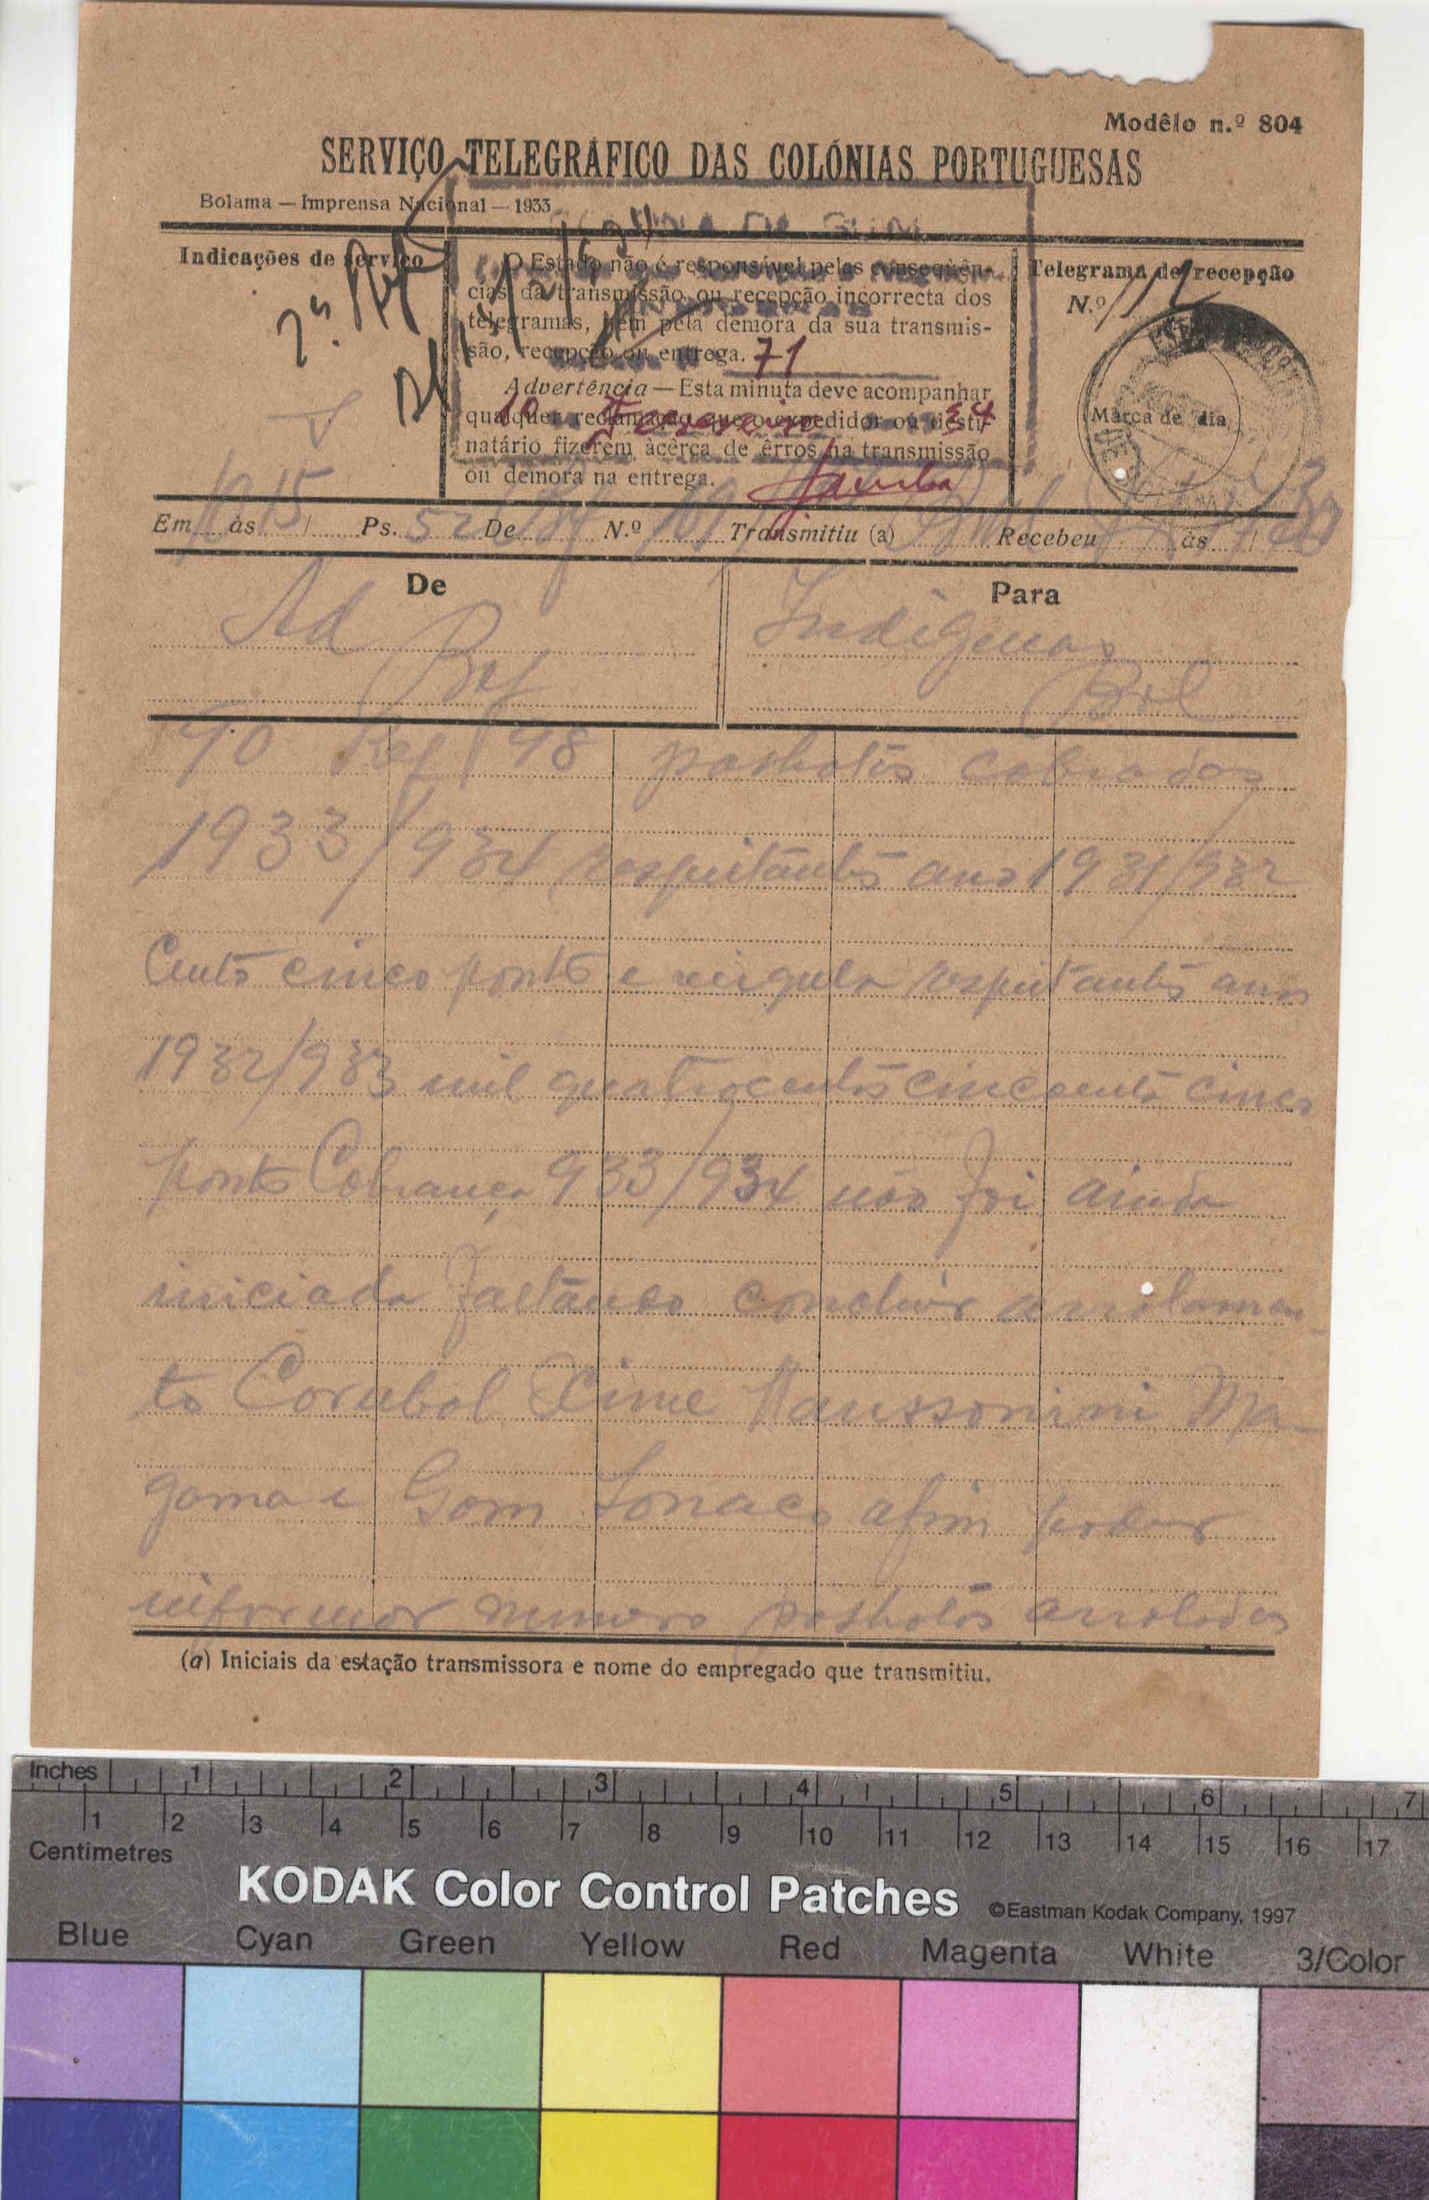 Modêlo n.º 804
SERVIÇO TELEGRÁFICO DAS COLÓNIAS PORTUGUESAS
Bolama — Imprensa Nacional — 1933
Indicações de serviço
O Estado não é responsável pelas conseqüên-
cias da transmissão ou recepção incorrecta dos
telegramas, nem pela demora da sua transmis-
são, recepção ou entrega.
71
Advertência — Esta minuta deve acompanhar
qualquer reclamação que o expedidor ou desti-
natário fizerem àcêrca de êrros na transmissão
ou demora na entrega.
10 Fevereiro 34
Telegrama de recepção
N.º 112
Marca de dia
Em às 15 Ps. 52 De N.º Transmitiu (a) Recebeu às
De
Ad
Baf
Para
Indigenas
Bol
70 Ref 98 palhotas cobradas
1933/934 respeitantes ano 1931/932
Cento cinco ponto e virgula respeitantes ano
1932/933 mil quatrocentos cincoenta cinco
ponto Cobrança 933/934 não foi ainda
iniciada faltando concluir arrolamen
to Corubal Xime Manssomini Ma-
gama e Gam afim poder
informar numero palhotas arroladas
(a) Iniciais da estação transmissora e nome do empregado que transmitiu.
Inches 1 2 3 4 5 6 7
1 2 3 4 5 6 7 8 9 10 11 12 13 14 15 16 17
Centimetres
KODAK Color Control Patches ©Eastman Kodak Company, 1997
Blue Cyan Green Yellow Red Magenta White 3/Color